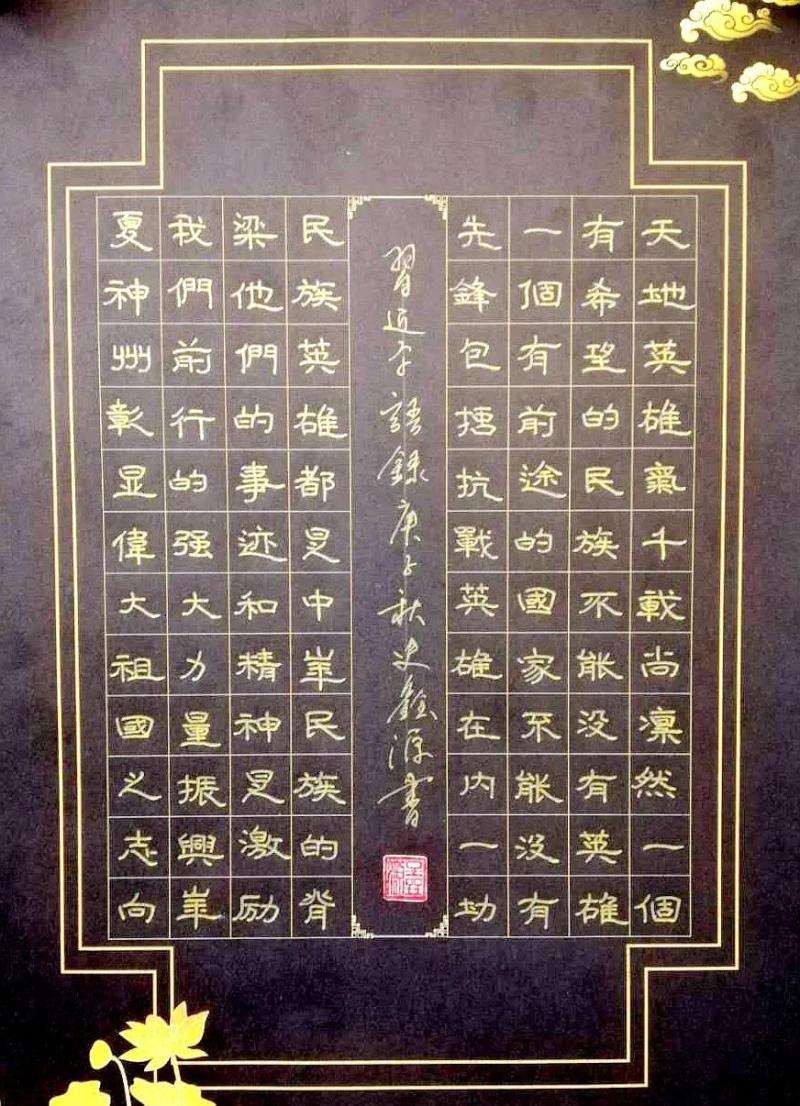 天地英雄氣千載尚凜然一個
有希望的民族不能没有英雄
一個有前途的國家不能没有
先鋒包括抗戰英雄在内一切
習近平語録庚子秋史鑫源書
民族英雄都是中華民族的脊
梁他們的事迹和精神是激励
我們前行的强大力量振興華
夏神州彰显偉大祖國之志向